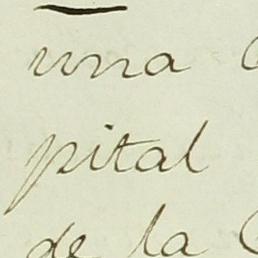 una
pital
de la